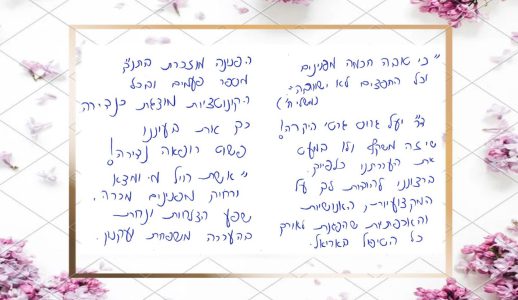 "כי טובה חכמה מפנינים
וכל החפצים לא ישוו בה"
(משלי ח')
ד"ר יעל גרוס היקרה!
שי זה משקף ולו במעט
את הערכתנו כלפייך.
ברצוננו להודות לך על
המקצועיות, האנושיות
והאכפתיות שהפגנת לאורך
כל הטיפול באריאל.
הפנינה מוזכרת בתנ"ך
מספר פעמים ובכל
הקונוטציות מוצגת כנדירה
כך את בעיננו
פשוט רופאה נדירה!
"אשת חיל מי ימצא
ורחוק מפנינים מכרה"
שפע הצלחות ונחת
בהערכה משפחת